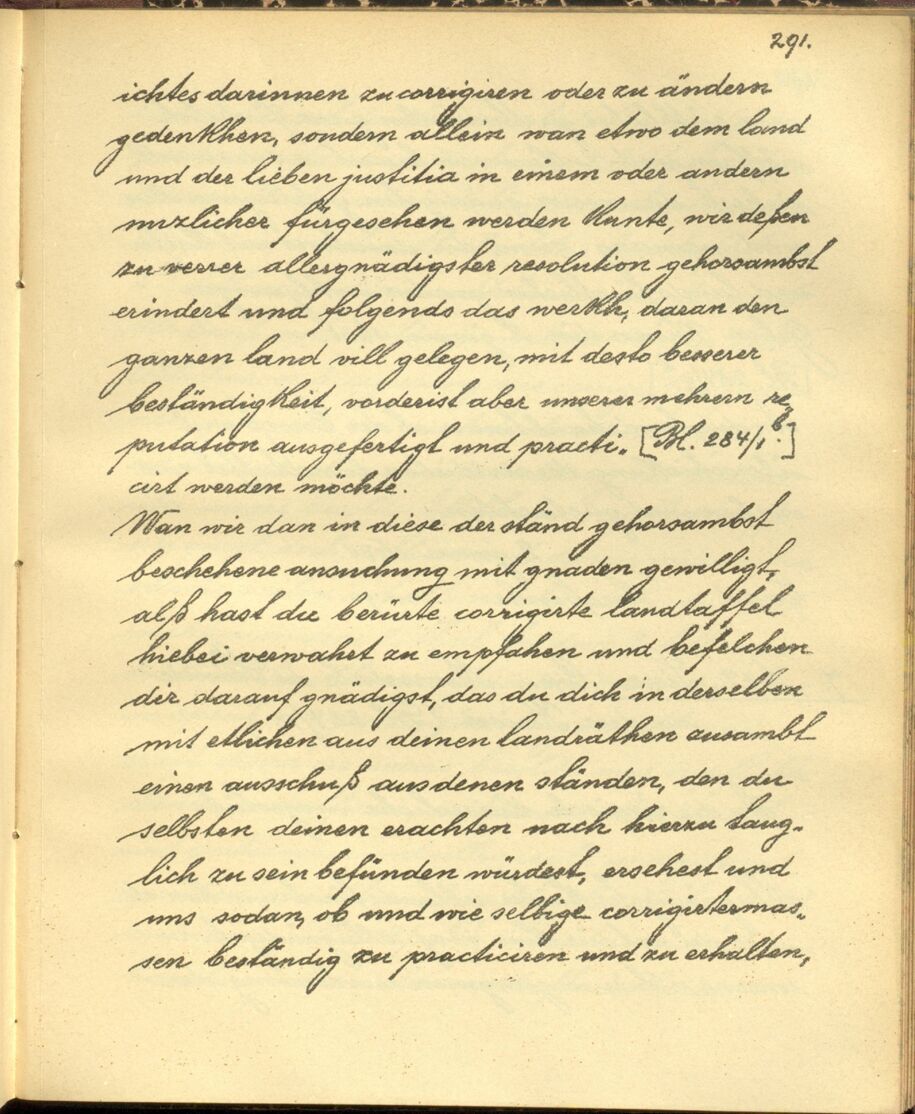 291.
ichtes darinnen zu corrigiren oder zu ändern
gedenkhen, sondern allein wan etwo dem land
und der lieben justitia in einem oder andern
nuzlicher fürgesehen werden kunte, wir deßen
zu verrer allergnädigster resolution gehorsambst
erindert und folgends das werkh, daran den
ganzen land vill gelegen, mit desto besserer
beständigkeit, vorderist aber unserer mehrern re„
putation ausgefertigt und practi„ [Bl. 284/1b.]
cirt werden möchte.
Wan wir dan in diese der ständ gehorsambst
beschehene ansuchung mit gnaden gewilligt,
alß hast du berürte corrigirte landtaffel
hiebei verwahrt zu empfahen und befelchen
dir darauf gnädigst, das du dich in derselben
mit etlichen aus deinen landräthen zusambt
einen ausschuß aus denen ständen, den du
selbsten deinen erachten nach hierzu taug„
lich zu sein befünden würdest, ersehest und
uns sodan, ob und wie selbige corrigirtermas„
sen beständig zu practiciren und zu erhalten,